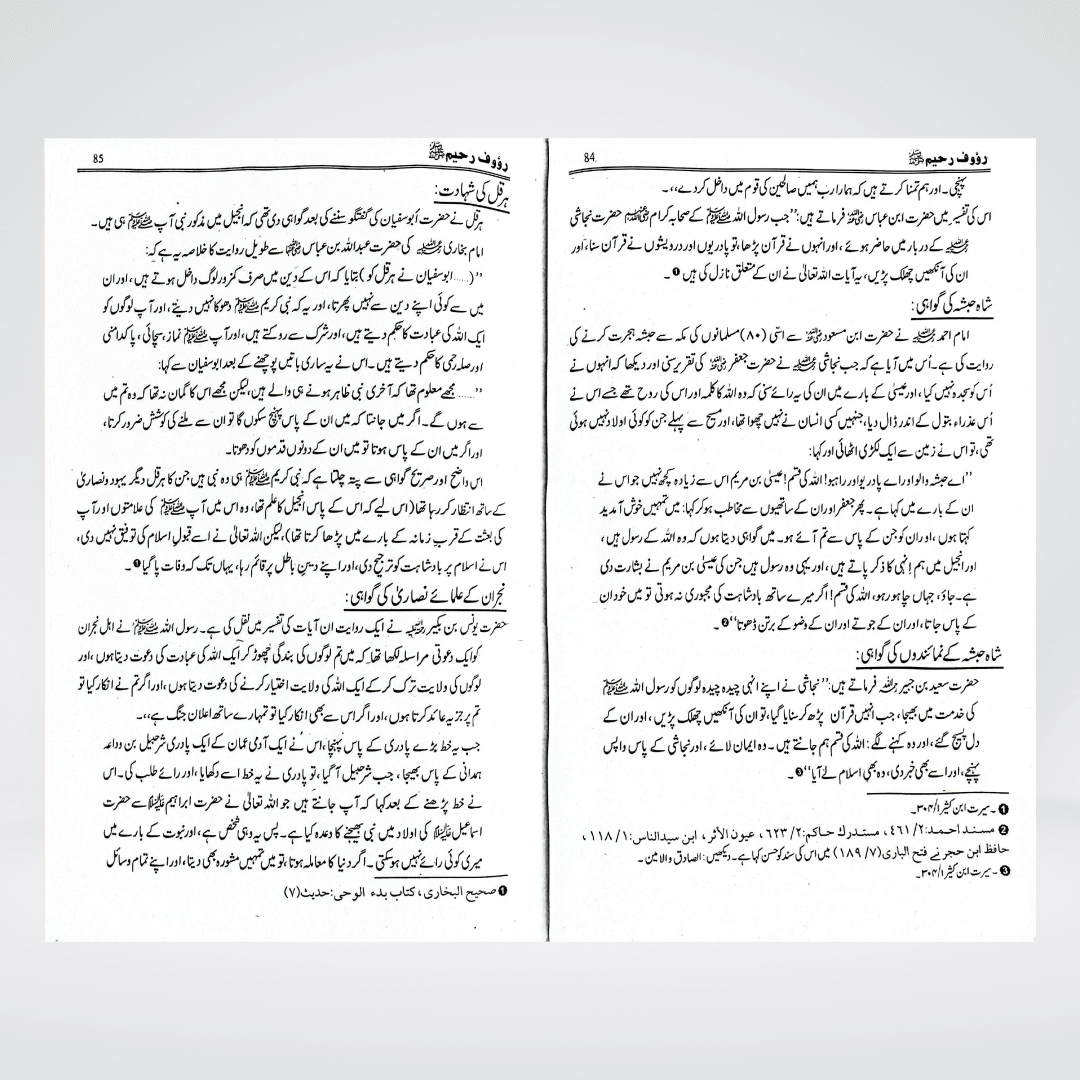 رؤوف رحیم ﷺ 84
پہنچی۔ اور ہم تمنا کرتے ہیں کہ ہمارا رب ہمیں صالحین کی قوم میں داخل کر دے،،۔
اس کی تفسیر میں حضرت ابن عباس رضی اللہ عنہ فرماتے ہیں:’’جب رسول اللہ ﷺ کے صحابہ کرام رضی اللہ عنہم حضرت نجاشی
رحمہ اللہ کے دربار میں حاضر ہوئے، اور انہوں نے قرآن پڑھا، تو پادریوں اور درویشوں نے قرآن سنا، اور
ان کی آنکھیں چھلک پڑیں، یہ آیات اللہ تعالیٰ نے ان کے متعلق نازل کی ہیں ❶۔
شاہ حبشہ کی گواہی:
امام احمد رحمہ اللہ نے حضرت ابن مسعود رضی اللہ عنہ سے اسّی (۸۰) مسلمانوں کی مکہ سے حبشہ ہجرت کرنے کی
روایت کی ہے۔ اُس میں آیا ہے کہ جب نجاشی رحمہ اللہ نے حضرت جعفر رضی اللہ عنہ کی تقریر سنی اور دیکھا کہ انہوں نے
اُس کو سجدہ نہیں کیا، اور عیسیٰ کے بارے میں ان کی یہ رائے سنی کہ وہ اللہ کا کلمہ اور اس کی روح تھے جسے اس نے
اُس عذراء بتول کے اندر ڈال دیا، جنہیں کسی انسان نے نہیں چھوا تھا، اور مسیح سے پہلے جن کو کوئی اولاد نہیں ہوئی
تھی، تو اس نے زمین سے ایک لکڑی اٹھائی اور کہا:
’’اے حبشہ والو اور اے پادریو اور راہبو! اللہ کی قسم! عیسیٰ بن مریم اس سے زیادہ کچھ نہیں جو اس نے
ان کے بارے میں کہا ہے۔ پھر جعفر اور ان کے ساتھیوں سے مخاطب ہو کر کہا: میں تمہیں خوش آمدید
کہتا ہوں، اور ان کو جن کے پاس سے تم آئے ہو۔ میں گواہی دیتا ہوں کہ وہ اللہ کے رسول ہیں،
اور انجیل میں ہم اُنہی کا ذکر پاتے ہیں، اور یہی وہ رسول ہیں جن کی عیسیٰ بن مریم نے بشارت دی
ہے۔ جاؤ، جہاں چاہو رہو، اللہ کی قسم! اگر میرے ساتھ بادشاہت کی مجبوری نہ ہوتی تو میں خود ان
کے پاس جاتا، اور ان کے جوتے اور ان کے وضو کے برتن ڈھوتا‘‘❷۔
شاہ حبشہ کے نمائندوں کی گواہی:
حضرت سعید بن جبیر رحمہ اللہ فرماتے ہیں:’’نجاشی نے اپنے انہی چیدہ چیدہ لوگوں کو رسول اللہ ﷺ
کی خدمت میں بھیجا، جب انہیں قرآن پڑھ کر سنایا گیا، تو ان کی آنکھیں چھلک پڑیں، اور ان کے
دل پسیج گئے، اور وہ کہنے لگے: اللہ کی قسم ہم جانتے ہیں۔ وہ ایمان لائے، اور نجاشی کے پاس واپس
پہنچے، اور اسے بھی خبر دی، وہ بھی اسلام لے آیا‘‘❸۔
❶ ۔سیرت ابن کثیر ۱/۳۰۴۔
❷ مسند احمد: ۲/۴۶۱، مستدرك حاكم: ۲/۶۲۳، عیون الأثر، ابن سیدالناس: ۱/۱۱۸،
حافظ ابن حجر نے فتح الباری (۷/ ۱۸۹) میں اس کی سند کو حسن کہا ہے۔ دیکھیں: الصادق والامین۔
❸ ۔سیرت ابن کثیر ۱/۳۰۴۔
رؤوف رحیم ﷺ 85
ہرقل کی شہادت:
ہرقل نے حضرت اُبوسفیان کی گفتگو سننے کی بعد گواہی دی تھی کہ انجیل میں مذکور نبی آپ ﷺ ہی ہیں۔
امام بخاری رحمہ اللہ کی حضرت عبداللہ بن عباس رضی اللہ عنہما سے طویل روایت کا خلاصہ یہ ہے کہ:
’’(.....ابوسفیان نے ہرقل کو) بتایا کہ اس کے دین میں صرف کمزور لوگ داخل ہوتے ہیں، اور ان
میں سے کوئی اپنے دین سے نہیں پھرتا، اور یہ کہ نبی کریم ﷺ دھوکا نہیں دیتے، اور آپ لوگوں کو
ایک اللہ کی عبادت کا حکم دیتے ہیں، اور شرک سے روکتے ہیں، اور آپ ﷺ نماز، سچائی، پاکدامنی
اور صلہ رحمی کا حکم دیتے ہیں۔ اس نے یہ ساری باتیں پوچھنے کے بعد ابوسفیان سے کہا:
’’.....مجھے معلوم تھا کہ آخری نبی ظاہر ہونے ہی والے ہیں، لیکن مجھے اس کا گمان نہ تھا کہ وہ تم میں
سے ہوں گے۔ اگر میں جانتا کہ میں ان کے پاس پہنچ سکوں گا تو ان سے ملنے کی کوشش ضرور کرتا،
اور اگر میں ان کے پاس ہوتا تو میں ان کے دونوں قدموں کو دھوتا۔
اس واضح اور صریح گواہی سے پتہ چلتا ہے کہ نبی کریم ﷺ ہی وہ نبی ہیں جن کا ہرقل دیگر یہود و نصاریٰ
کے ساتھ انتظار کر رہا تھا (اس لیے کہ اس کے پاس انجیل کا علم تھا، وہ اس میں آپ ﷺ کی علامتوں اور آپ
کی بعثت کے قرب زمانہ کے بارے میں پڑھا کرتا تھا)، لیکن اللہ تعالیٰ نے اسے قبولِ اسلام کی توفیق نہیں دی،
اس نے اسلام پر بادشاہت کو ترجیح دی، اور اپنے دین باطل پر قائم رہا، یہاں تک کہ وفات پا گیا❶۔
نجران کے علمائے نصاریٰ کی گواہی:
حضرت یونس بن بکیر رحمہ اللہ نے ایک روایت ان آیات کی تفسیر میں نقل کی ہے۔ رسول اللہ ﷺ نے اہل نجران
کو ایک دعوتی مراسلہ لکھا تھا کہ میں تم لوگوں کی بندگی چھوڑ کر ایک اللہ کی عبادت کی دعوت دیتا ہوں، اور
لوگوں کی ولایت ترک کر کے ایک اللہ کی ولایت اختیار کرنے کی دعوت دیتا ہوں، اور اگر تم نے انکار کیا تو
تم پر جزیہ عائد کرتا ہوں، اور اگر اس سے بھی انکار کیا تو تمہارے ساتھ اعلان جنگ ہے،،۔
جب یہ خط بڑے پادری کے پاس پہنچا، اس نے ایک آدمی عمان کے ایک پادری شرحبیل بن وداعہ
ہمدانی کے پاس بھیجا، جب شرحبیل آ گیا، تو پادری نے یہ خط اسے دکھایا، اور رائے طلب کی۔ اس
نے خط پڑھنے کے بعد کہا کہ آپ جانتے ہیں جو اللہ تعالیٰ نے حضرت ابراہیم علیہ السلام سے حضرت
اسماعیل علیہ السلام کی اولاد میں نبی بھیجنے کا وعدہ کیا ہے۔ پس یہ وہی شخص ہے، اور نبوت کے بارے میں
میری کوئی رائے نہیں ہو سکتی۔ اگر دنیا کا معاملہ ہوتا، تو میں تمہیں مشورہ بھی دیتا، اور اپنے تمام وسائل
❶ صحیح البخاری، کتاب بدء الوحی: حدیث (۷)